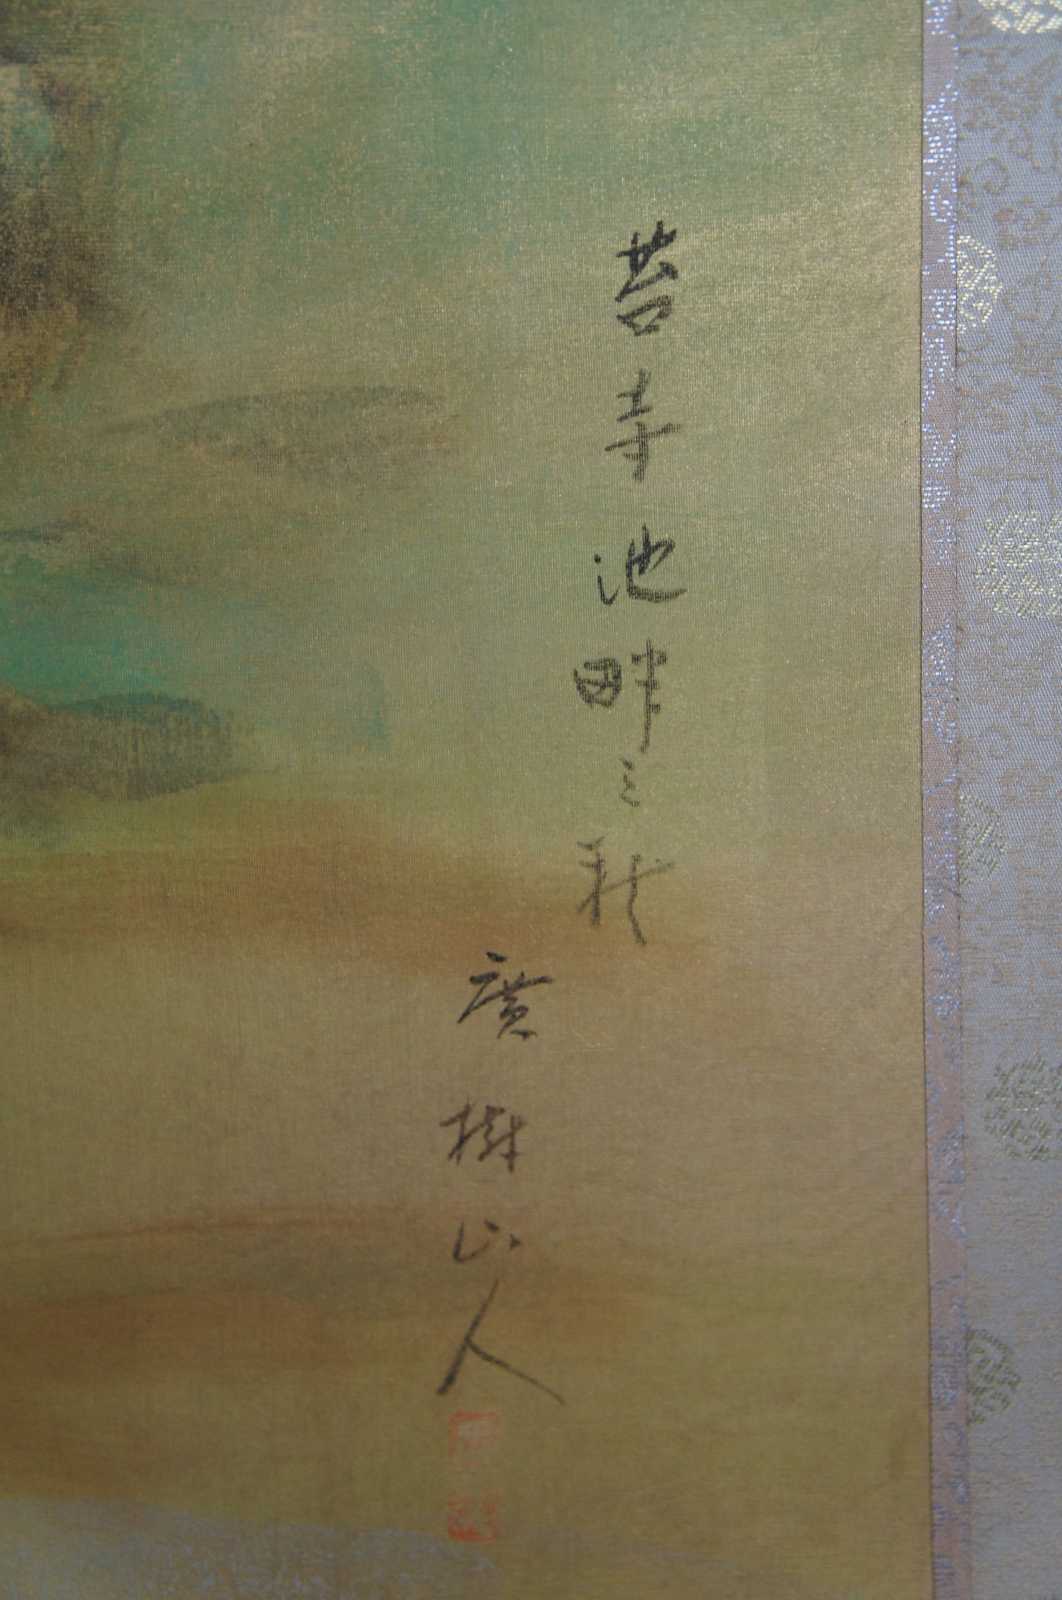 苔寺池畔之秋
廣樹山人